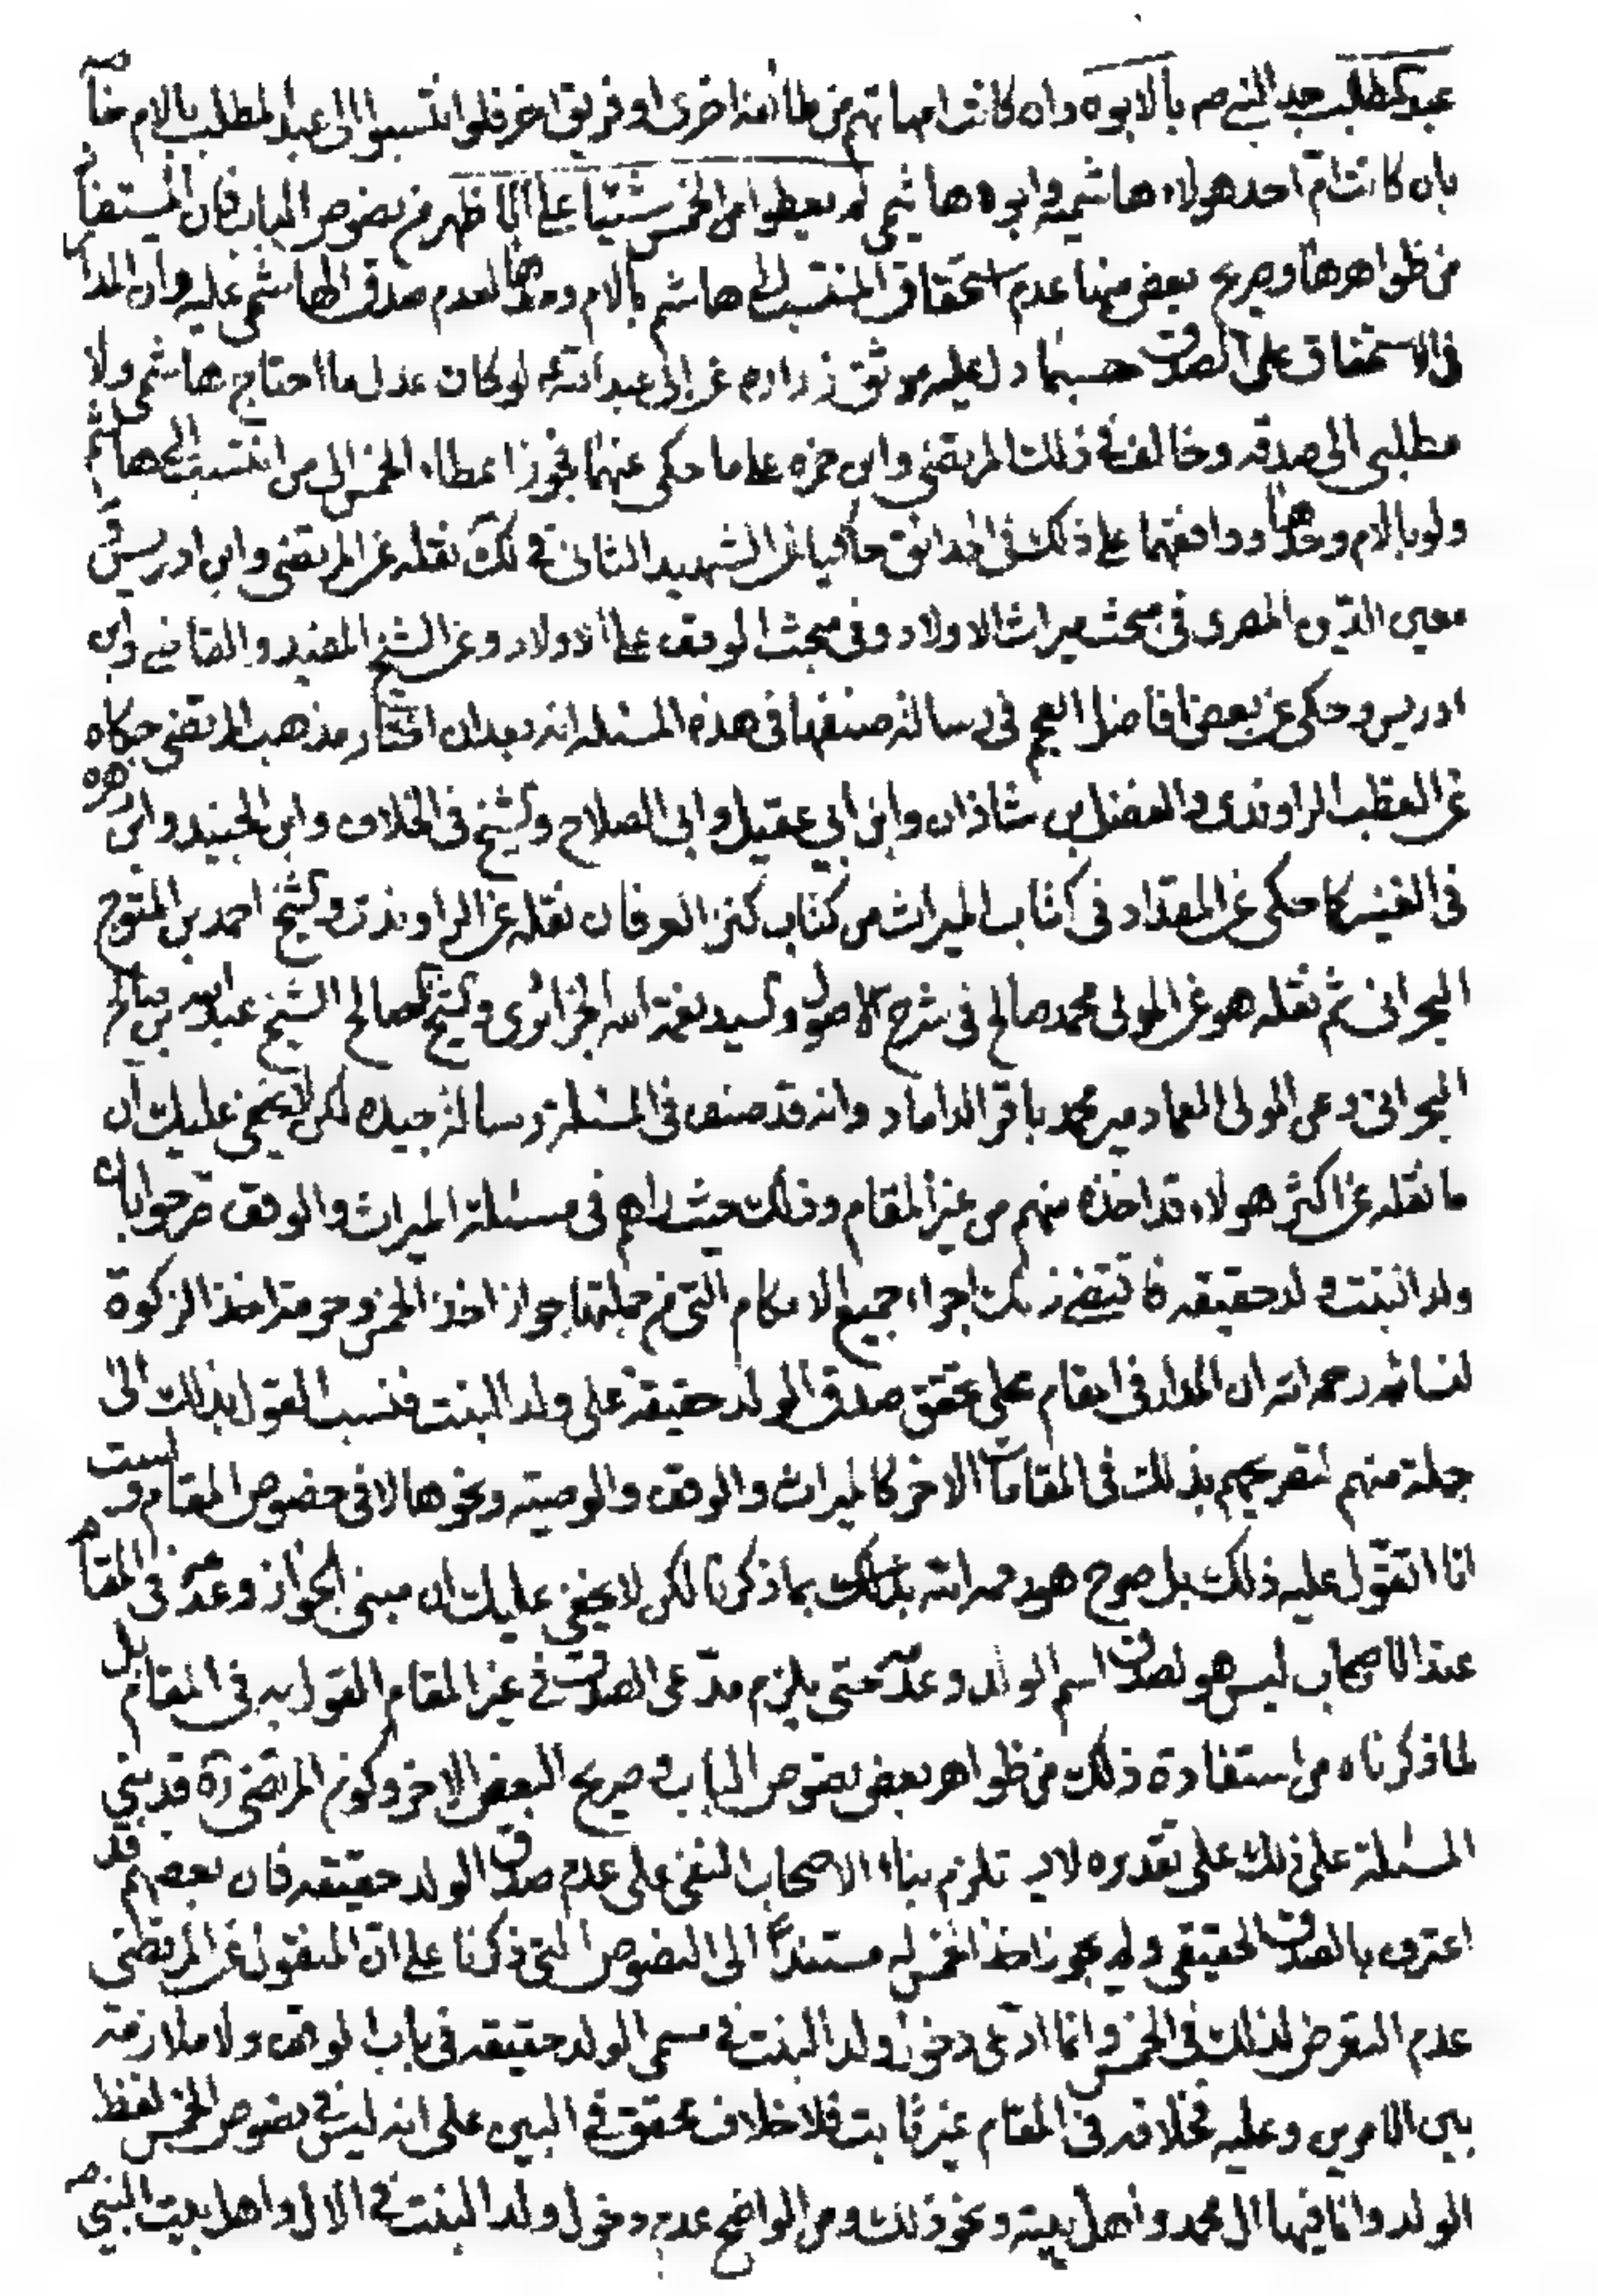 عبد المطلب جد النبي ص بالابوه وان كانت امهاتهم من طائفة اخرى او فريق اخر فلو انتسبوا الى عبد المطلب بالام خاصه
بان كانت ام احد هولاء هاشميه وابوه ها شمي لم يعطوا من الخمس شيئا على الاظهر من نصوص الباب فان المستفاد
من ظواهرها وصريح بعض منها عدم استحقاق المنتسب الى هاشم بالام وحدها لعدم صدق الهاشمي عليه وان المدار
في الاستحقاق على الصدق حسبما دل عليه موثق زراره عن ابي عبد الله ع لو كان عدل ما احتاج هاشمي ولا
مطلبي الى صدقه وخالف في ذلك المرتضى وابن حمزه على ما حكى عنهما فجوزا اعطاء الخمس الى من انتسب الى هاشم
ولو بالام وحدها ووافقهما على ذلك في الحدائق حاكيا عن الشهيد الثاني في لك نقله عن المرتضى وابن ادريس و
معين الدين المصرى في مبحث ميراث الاولاد وفي مبحث الوقف على الاولاد وعن الشيخ المفيد والقاضي وابن
ادريس وحكى عن بعض افاضل العجم في رسالة صنفها في هذه المسئله انه بعد ان اختار مذهب المرتضى حكاه
عن القطب الراوندى والفضل بن شاذان وابن ابي عقيل وابي الصلاح والشيخ في الخلاف وابن الجنيد وابن زهره
في الغنيه كما حكى عن المقداد في كتاب الميراث من كتاب كنز العرفان نقله عن الراوندى والشيخ احمد بن المتوج
البحراني ثم نقله هو عن المولى محمد صالح في شرح الاصول والسيد نعمة الله الجزائرى والشيخ الصالح الشيخ عبد الله بن صالح
البحراني وعن المولى العماد مير محمد باقر الداماد وانه قد صنف في المسئلة رسالة جيده لكن لا يخفى عليك ان
ما نقله عن اكثر هولاء قد اخذه منهم من غير المقام وذلك حيث راهم في مسئلة الميراث والوقف صرحوا بان
ولد البنت ولد حقيقه فاقتضى ذلك اجراء جميع الاحكام التي من جملتها جواز اخذ الخمس وحرمة اخذ الزكوة
لبنائه رحمه الله ان المدار في المقام على تحقق صدق الولد حقيقة على ولد البنت فنسب القول بذلك الى
جملة منهم لتصريحهم بذلك في المقامات الاخر كالميراث والوقف والوصيه ونحوها لا في خصوص المقام ولست
انا اتقول عليه ذلك بل صرح هو رحمه الله بذلك بما ذكرنا لكن لا يخفى عليك ان مبنى الجواز وعدمه في المقام
عند الاصحاب ليس هو لصدق اسم الولد وعدمه حتى يلزم مدعى الصدق في غير المقام القول به في المقام بل
لما ذكرناه من استفادة ذلك من ظواهر بعض نصوص الباب وصريح البعض الاخر وكون المرتضى ره قد بنى
المسئلة على ذلك على تقديره لا يستلزم بناء الاصحاب النفى على عدم صدق الولد حقيقه فان بعضهم قد
اعترف بالصدق الحقيقي ولم يجوز اخذ الخمس له مستندا الى النصوص التي ذكرنا على ان المنقول عن المرتضى
عدم التعرض لذلك في الخمس وانما ادعى دخول ولد البنت في مسمى الولد حقيقه في باب الوقف ولا ملازمة
بين الامرين وعليه فخلافه في المقام غير ثابت فلا خلاف محقق في البين على انه ليس في نصوص الخمس لفظ
الولد وانما فيها ال محمد واهل بيته ونحو ذلك ومن الواضح عدم دخول ولد البنت في الال واهل بيت النبي ص